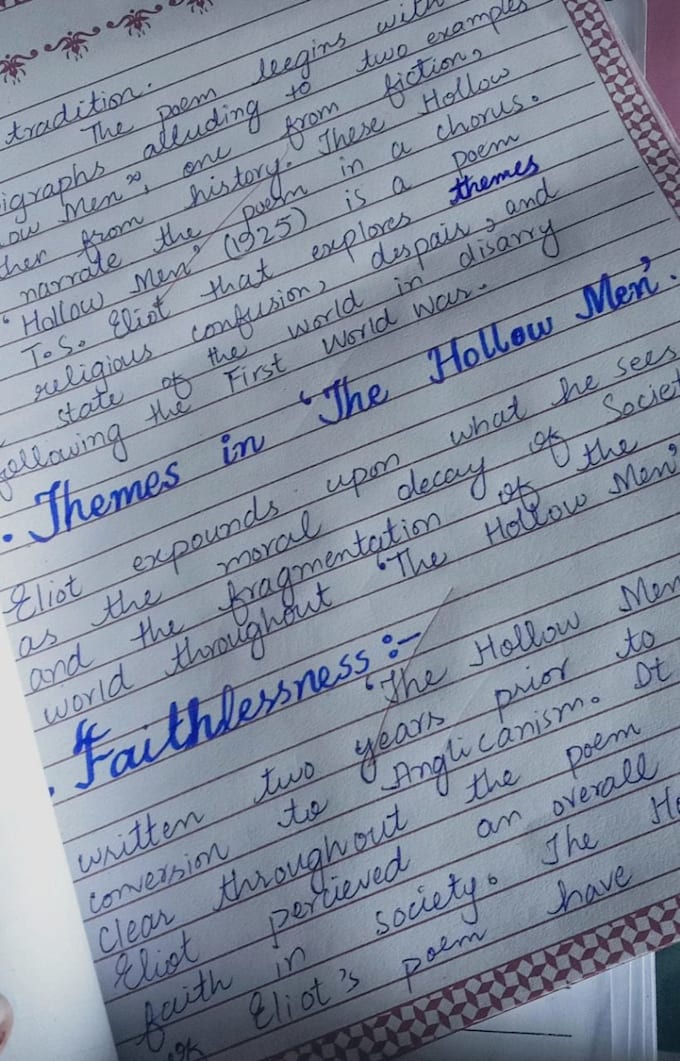 tradition.
The poem begins with
igraphs alluding to two examples
ow Men", one from fiction,
ther from history. These Hollow
narrate the poem in a chorus.
'Hollow Men' (1925) is a poem
T.S. Eliot that explores themes
religious confusion, despair, and
state of the world in disarry
following the First World War.
. Themes in 'The Hollow Men'.
Eliot expounds upon what he sees
as the moral decay of Societ
and the fragmentation of the
world throughout 'The Hollow Men'
. "Faithlessness :-
'The Hollow Men
written two years prior to
conversion to Anglicanism. It
clear throughout the poem
Eliot percieved an overall
faith in society. The Ho
of Eliot's poem have